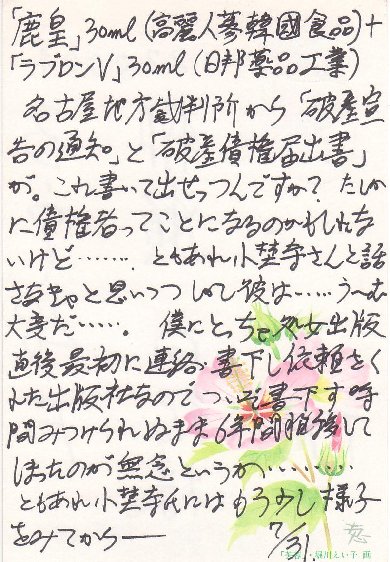 「鹿皇」30ml(高麗人蔘韓國食品)+
「ラブロンV」30ml(日邦薬品工業)
名古屋地方裁判所から「破産宣
告の通知」と「破産債権届出書」
が。これ書いて出せっつんですか？たしか
に債権者ってことになるのかもしれな
いけど……… ともあれ小埜寺さんと話
さなきゃと思いつつしかし彼は……う〜む
大変だ……。 僕にとっちゃ処女出版
直後最初に連絡・書下し依頼をく
れた出版社なのでついぞ書下す時
間みつけられぬまま6年間
しまったのが無念というか………
ともあれ小埜寺氏にはもう少し様子
をみてから――
7/31.
「芙蓉」・緑川えい子 画